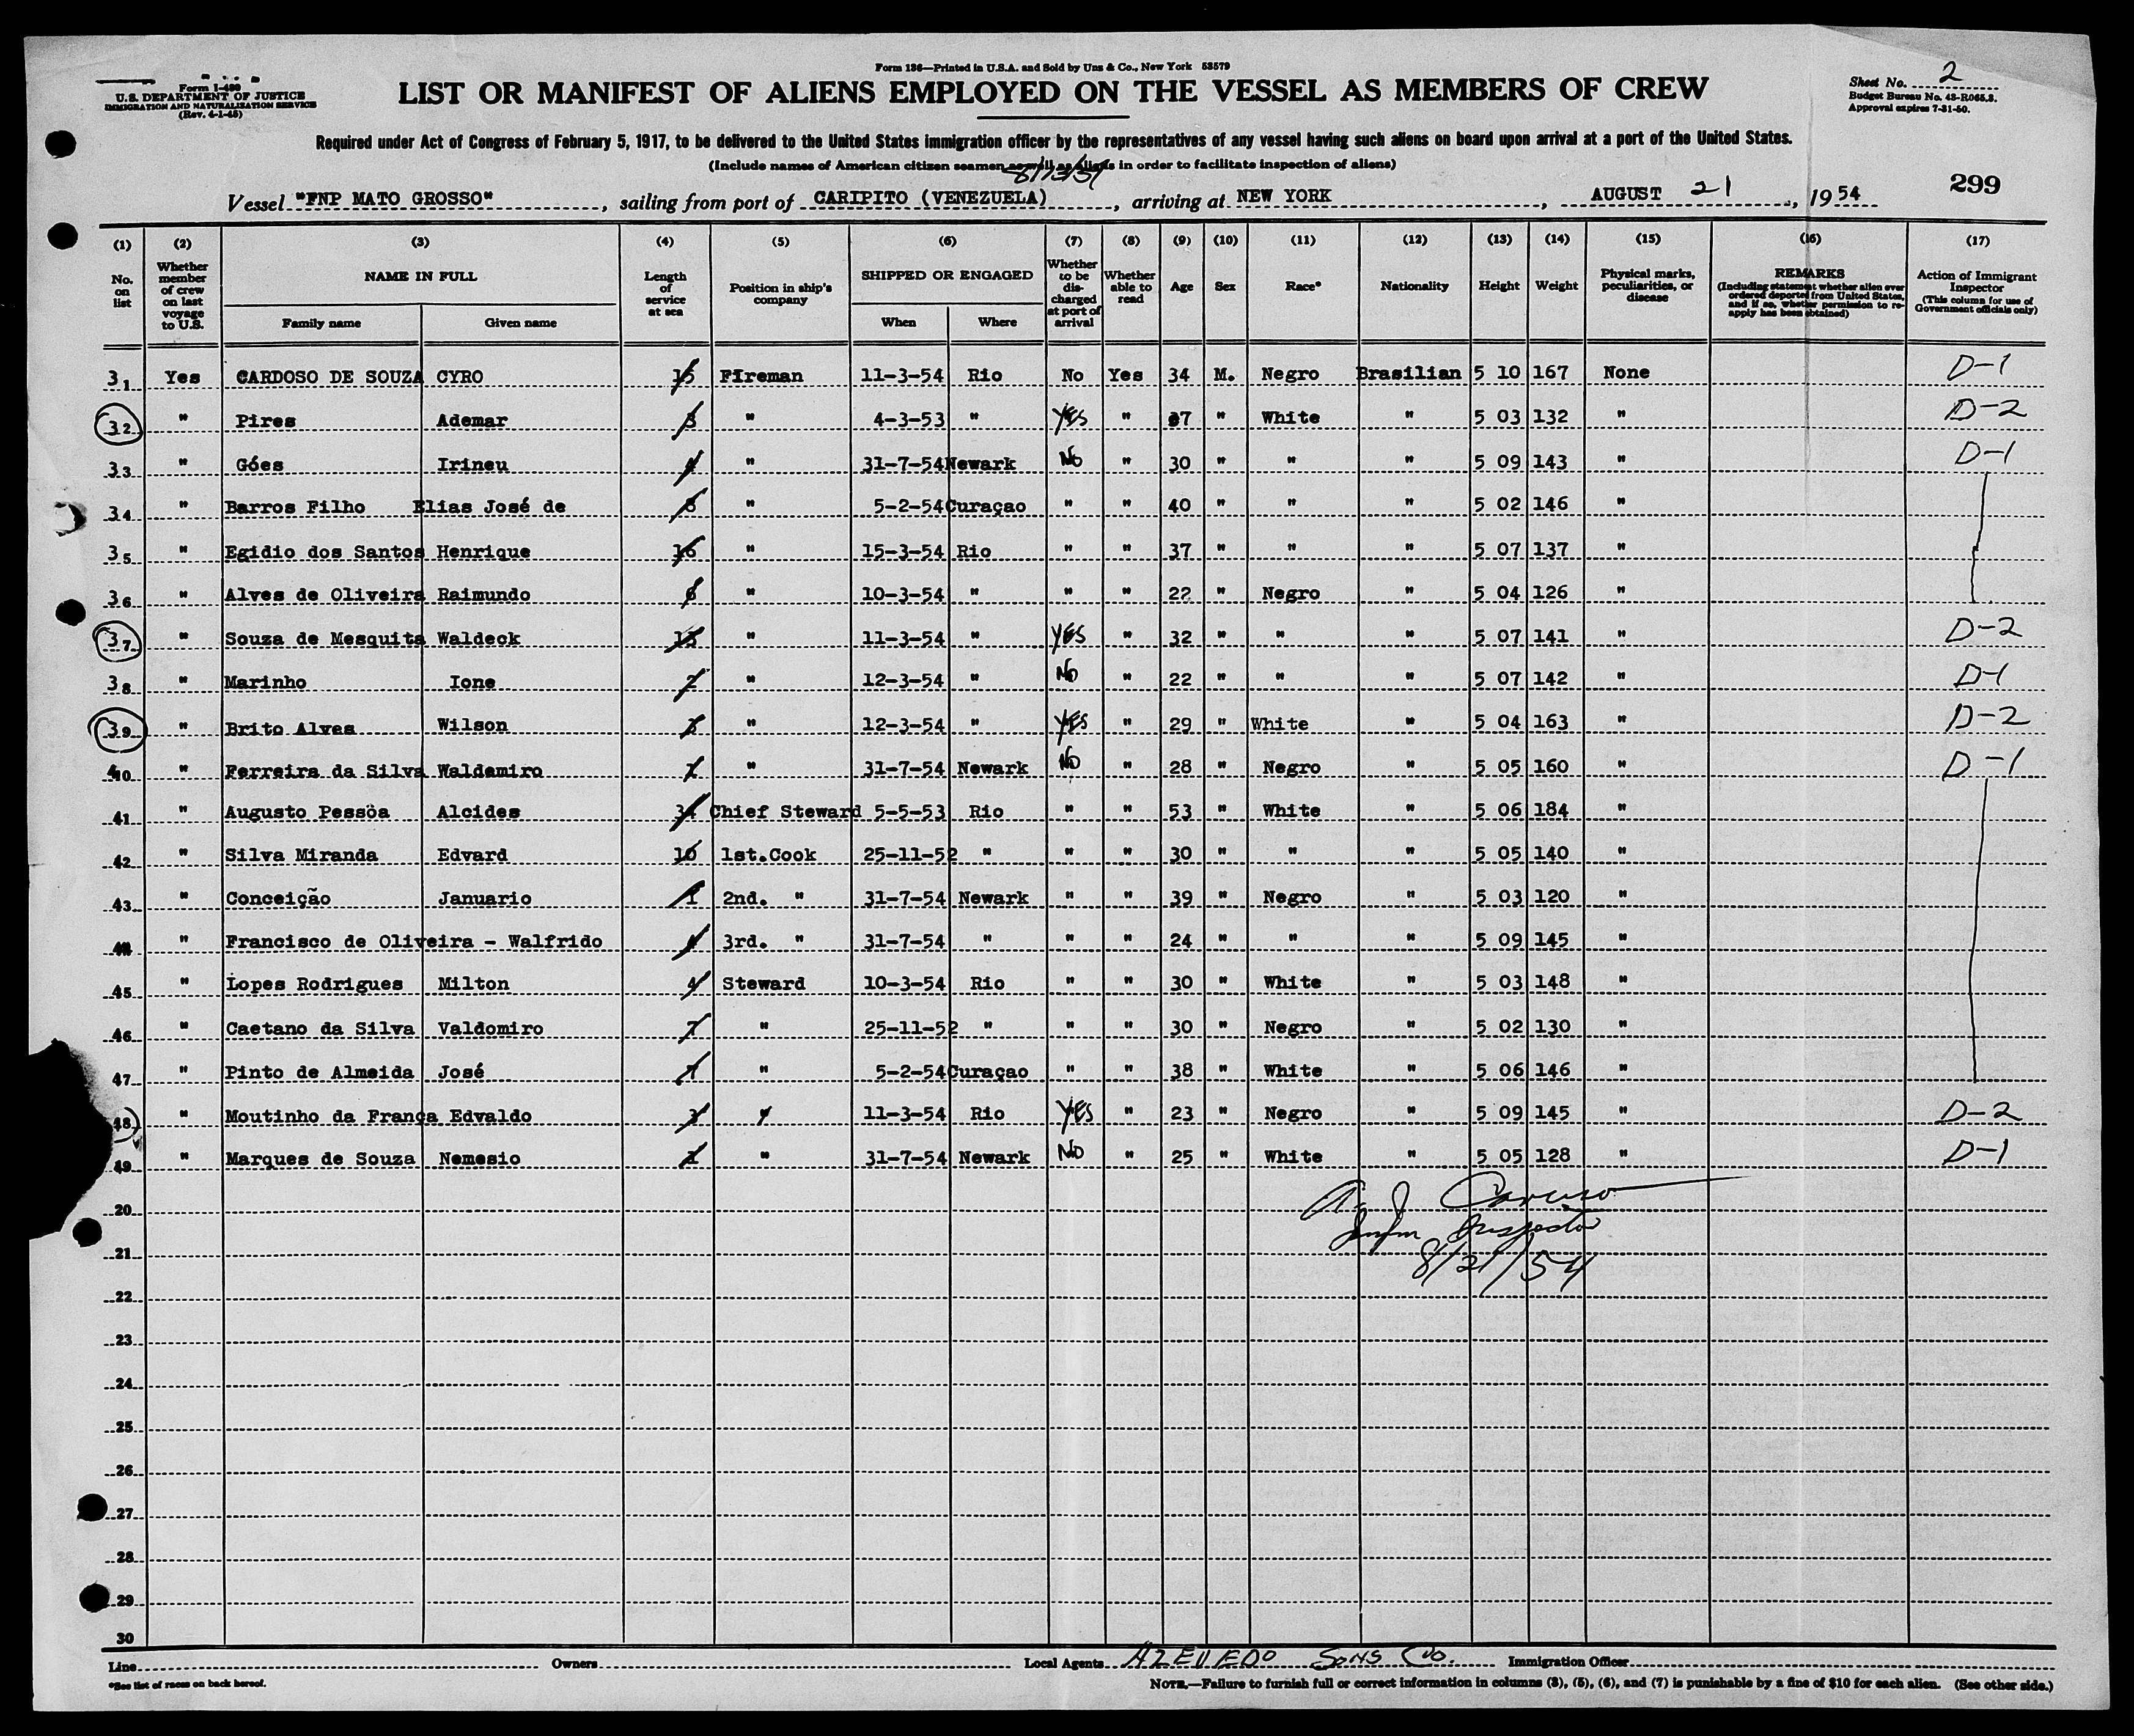 Form 136—Printed in U.S.A. and Sold by Unz & Co., New York 53579
Form I-480
U.S. DEPARTMENT OF JUSTICE
IMMIGRATION AND NATURALIZATION SERVICE
(Rev. 4-1-45)
LIST OR MANIFEST OF ALIENS EMPLOYED ON THE VESSEL AS MEMBERS OF CREW
Sheet No. 2
Budget Bureau No. 43-R065.3.
Approval expires 7-31-50.
Required under Act of Congress of February 5, 1917, to be delivered to the United States immigration officer by the representatives of any vessel having such aliens on board upon arrival at a port of the United States.
(Include names of American citizen seamen as well as aliens in order to facilitate inspection of aliens)
8/13/54
Vessel "FNP MATO GROSSO", sailing from port of CARIPITO (VENEZUELA), arriving at NEW YORK, AUGUST 21, 1954
299
(1) No. on list
(2) Whether member of crew on last voyage to U.S.
(3) NAME IN FULL Family name Given name
(4) Length of service at sea
(5) Position in ship's company
(6) SHIPPED OR ENGAGED When Where
(7) Whether to be discharged at port of arrival
(8) Whether able to read
(9) Age
(10) Sex
(11) Race*
(12) Nationality
(13) Height
(14) Weight
(15) Physical marks, peculiarities, or disease
(16) REMARKS (Including statement whether alien ever ordered deported from United States, and if so, whether permission to re-apply has been obtained)
(17) Action of Immigrant Inspector (This column for use of Government officials only)
31 Yes CARDOSO DE SOUZA CYRO 15 Fireman 11-3-54 Rio No Yes 34 M. Negro Brasilian 5 10 167 None D-1
32 " Pires Ademar 3 " 4-3-53 " YES " 7 " White " 5 03 132 " D-2
33 " Góes Irineu " 31-7-54 Newark No " 30 " " " 5 09 143 " D-1
34 " Barros Filho Elias José de 8 " 5-2-54 Curaçao " " 40 " " " 5 02 146 "
35 " Egidio dos Santos Henrique 16 " 15-3-54 Rio " " 37 " " " 5 07 137 "
36 " Alves de Oliveira Raimundo 6 " 10-3-54 " " " 22 " Negro " 5 04 126 "
37 " Souza de Mesquita Waldeck 13 " 11-3-54 " YES " 32 " " " 5 07 141 " D-2
38 " Marinho Ione 2 " 12-3-54 " No " 22 " " " 5 07 142 " D-1
39 " Brito Alves Wilson " 12-3-54 " YES " 29 " White " 5 04 163 " D-2
40 " Ferreira da Silva Waldemiro " 31-7-54 Newark No " 28 " Negro " 5 05 160 " D-1
41 " Augusto Pessöa Alcides 34 Chief Steward 5-5-53 Rio " " 53 " White " 5 06 184 "
42 " Silva Miranda Edvard 10 1st.Cook 25-11-52 " " " 30 " " " 5 05 140 "
43 " Conceição Januario 1 2nd. " 31-7-54 Newark " " 39 " Negro " 5 03 120 "
44 " Francisco de Oliveira - Walfrido 3rd. " 31-7-54 " " " 24 " " " 5 09 145 "
45 " Lopes Rodrigues Milton 4 Steward 10-3-54 Rio " " 30 " White " 5 03 148 "
46 " Caetano da Silva Valdomiro 7 " 25-11-52 " " " 30 " Negro " 5 02 130 "
47 " Pinto de Almeida José " 5-2-54 Curaçao " " 38 " White " 5 06 146 "
48 " Moutinho da França Edvaldo 3 " 11-3-54 Rio YES " 23 " Negro " 5 09 145 " D-2
49 " Marques de Souza Nemesio " 31-7-54 Newark No " 25 " White " 5 05 128 " D-1
20
A. J. Caruso
Immn Inspector
21
8/21/54
22
23
24
25
26
27
28
29
30
Line Owners Local Agents AZEVEDO SONS Co. Immigration Officer
*See list of races on back hereof.
NOTE.—Failure to furnish full or correct information in columns (3), (5), (6), and (7) is punishable by a fine of $10 for each alien. (See other side.)